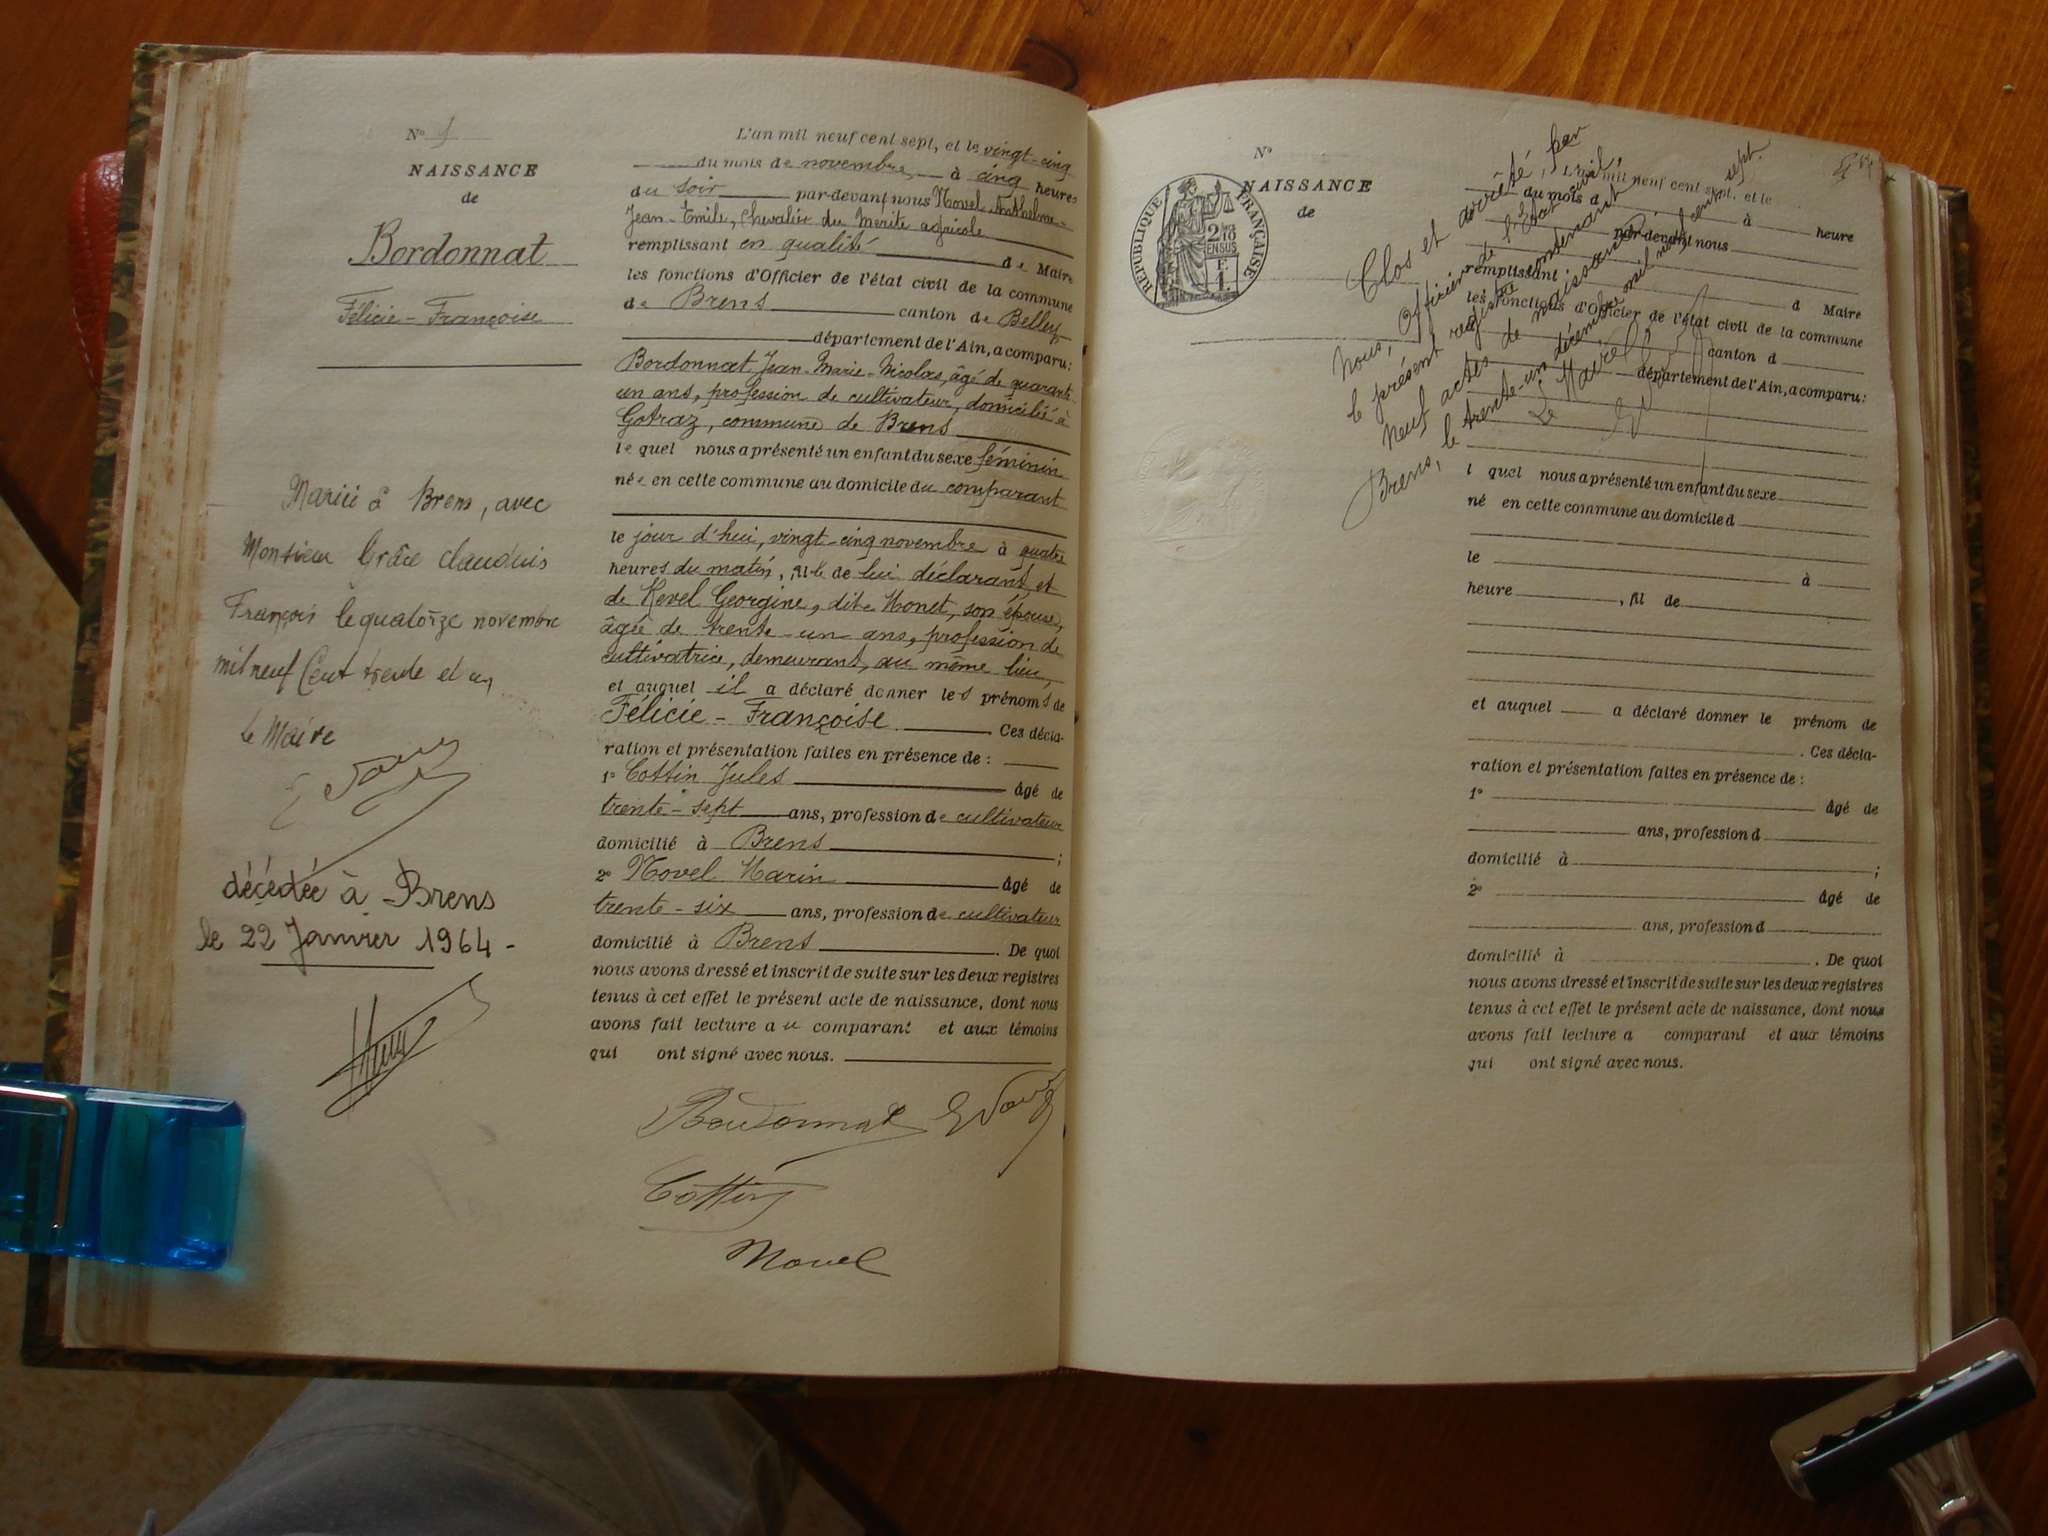 N° 9
NAISSANCE
de
Bordonnat
Félicie - Françoise
Mariée à Brens, avec
Monsieur Grâce Claudius
François le quatorze novembre
mil neuf Cent trente et un
le Maire
décédée à Brens
le 22 Janvier 1964 -
L'an mil neuf cent sept, et le vingt-cinq
du mois de novembre à cinq heures
du soir par-devant nous Novel Anthelme-
Jean-Emile, Chevalier du Mérite agricole
remplissant en qualité de Maire
les fonctions d'Officier de l'état civil de la commune
de Brens canton de Belley
département de l'Ain, a comparu :
Bordonnat Jean-Marie-Nicolas, âgé de quarante
un ans, profession de cultivateur, domicilié à
Gotraz, commune de Brens
le quel nous a présenté un enfant du sexe féminin
née en cette commune au domicile du comparant
le jour d'hui, vingt-cinq novembre à quatre
heures du matin, fille de lui déclarant et
de Revel Georgine, dite Monet, son épouse,
âgée de trente-un ans, profession de
cultivatrice, demeurant, au même lieu,
et auquel il a déclaré donner les prénoms de
Félicie - Françoise. Ces décla-
ration et présentation faites en présence de :
1° Cottin Jules âgé de
trente-sept ans, profession de cultivateur
domicilié à Brens ;
2° Novel Marin âgé de
trente-six ans, profession de cultivateur
domicilié à Brens. De quoi
nous avons dressé et inscrit de suite sur les deux registres
tenus à cet effet le présent acte de naissance, dont nous
avons fait lecture au comparant et aux témoins
qui ont signé avec nous.
Bordonnat
Cottin
Novel
N°
NAISSANCE
de
RÉPUBLIQUE FRANÇAISE
2 10es
EN SUS
Clos et arrêté, par
Nous, Officier de l'Etat civil,
le présent registre contenant
Neuf actes de naissance
Brens, le trente-un décembre mil neuf cent sept.
Le Maire
L'an mil neuf cent sept, et le
du mois d à heure
par-devant nous
remplissant d Maire
les fonctions d'Officier de l'état civil de la commune
canton d
département de l'Ain, a comparu :
l quel nous a présenté un enfant du sexe
né en cette commune au domicile d
le à
heure , fil de
et auquel a déclaré donner le prénom de
. Ces décla-
ration et présentation faites en présence de :
1° âgé de
ans, profession d
domicilié à ;
2° âgé de
ans, profession d
domicilié à . De quoi
nous avons dressé et inscrit de suite sur les deux registres
tenus à cet effet le présent acte de naissance, dont nous
avons fait lecture a comparant et aux témoins
qui ont signé avec nous.